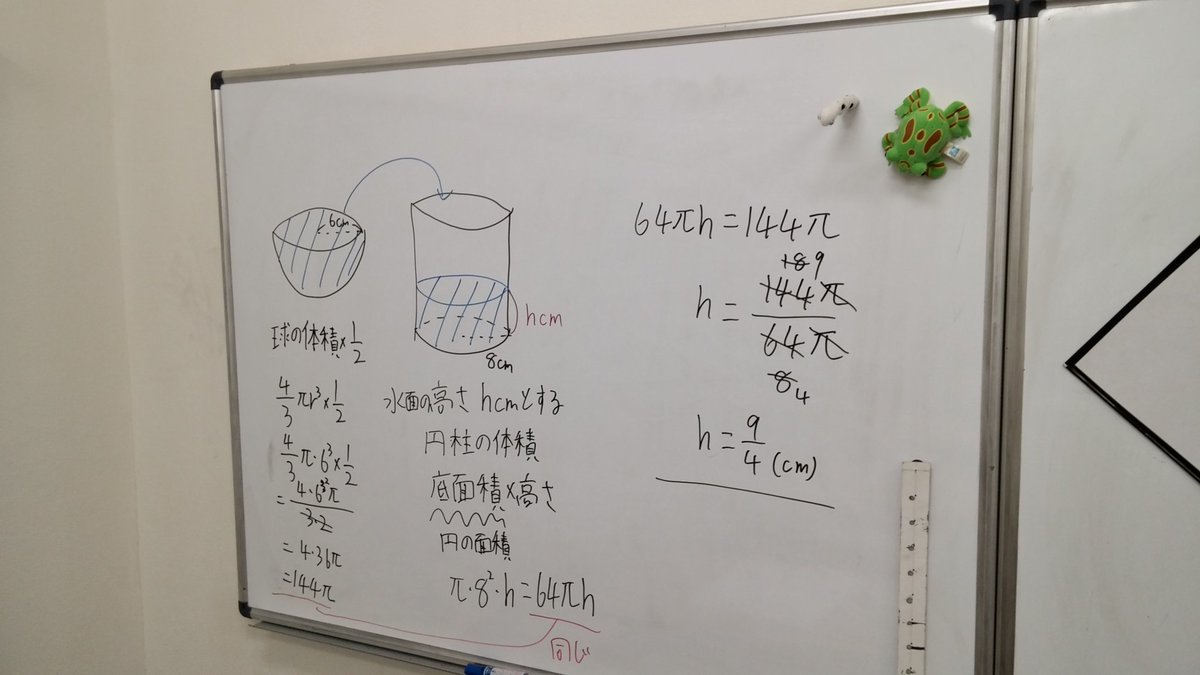 6cm
球の体積×1/2
4/3 πr³×1/2
4/3 π・6³×1/2
= 4・6³²π / 3・2
= 4・36π
=144π
hcm
8cm
水面の高さ hcmとする
円柱の体積
底面積×高さ
円の面積
π・8²・h=64πh
同じ
64πh=144π
18 9
h= 144π / 64π
8 4
h= 9/4 (cm)